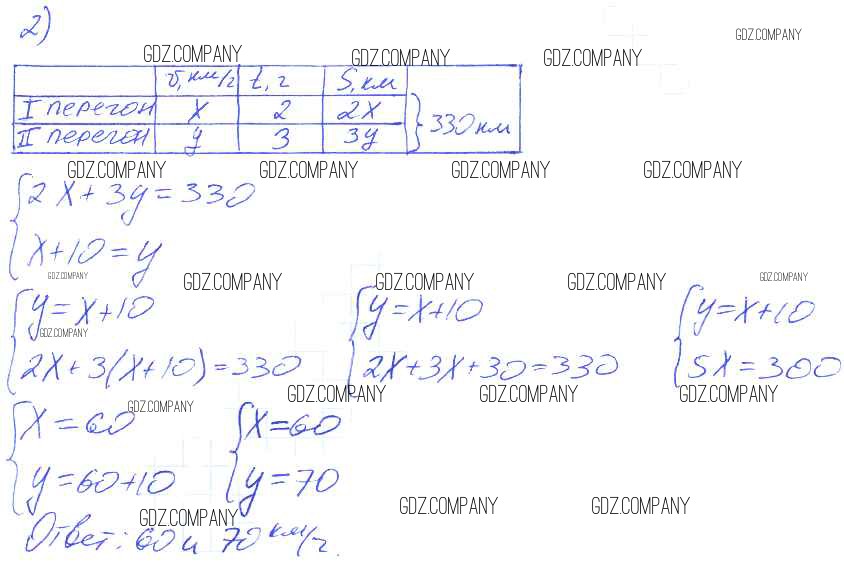 2)
GDZ.COMPANY GDZ.COMPANY GDZ.COMPANY GDZ.COMPANY
v, км/ч t, ч S, км
I перегон x 2 2x } 330 км
II перегон y 3 3y
GDZ.COMPANY GDZ.COMPANY GDZ.COMPANY GDZ.COMPANY
{ 2x + 3y = 330
x + 10 = y
GDZ.COMPANY GDZ.COMPANY GDZ.COMPANY GDZ.COMPANY GDZ.COMPANY
{ y = x + 10 { y = x + 10 { y = x + 10
GDZ.COMPANY
2x + 3(x + 10) = 330 2x + 3x + 30 = 330 5x = 300
GDZ.COMPANY GDZ.COMPANY GDZ.COMPANY GDZ.COMPANY
{ x = 60 { x = 60
y = 60 + 10 y = 70
GDZ.COMPANY GDZ.COMPANY GDZ.COMPANY
Ответ: 60 и 70 км/ч.